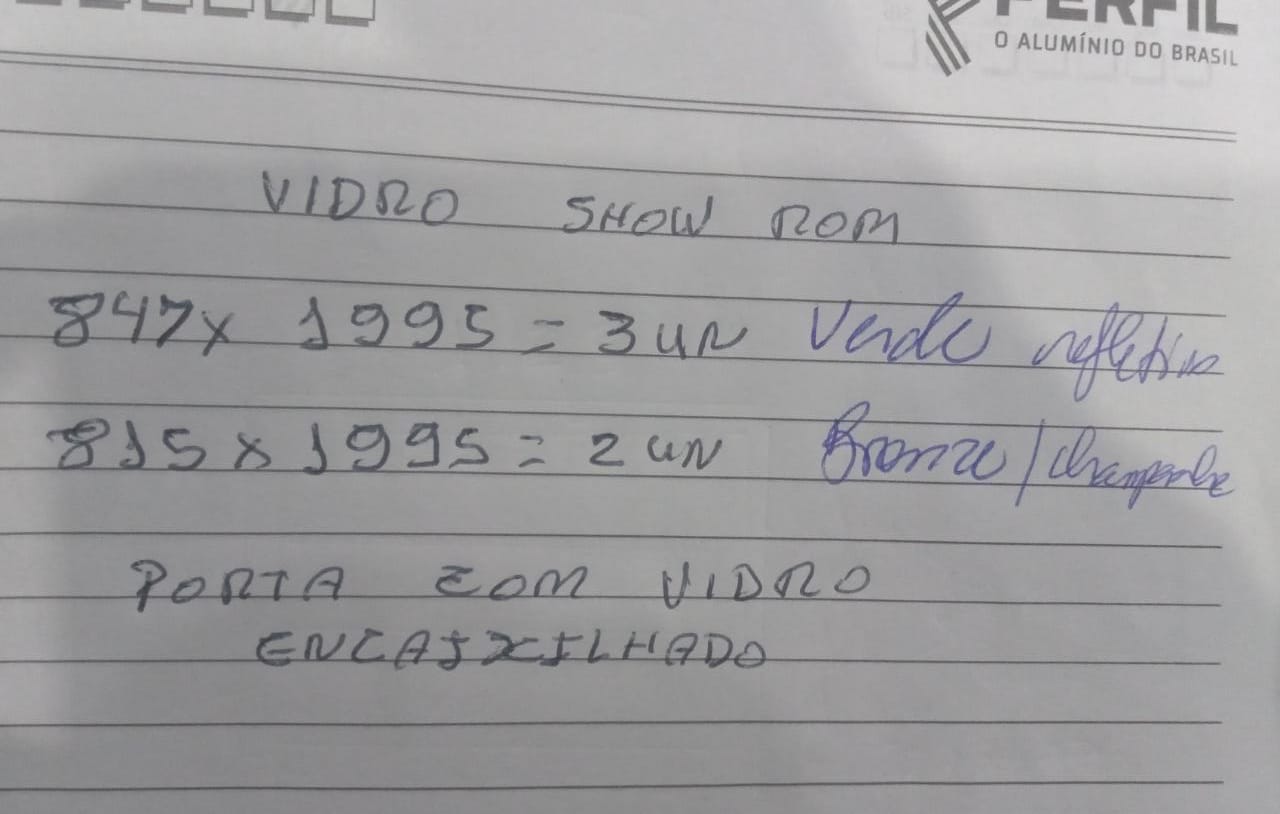 PERFIL
O ALUMÍNIO DO BRASIL
VIDRO SHOW ROM
847 x 1995 = 3 UN Verde refletivo
815 x 1995 = 2 UN Bronze / champanhe
PORTA COM VIDRO
ENCAIXILHADO